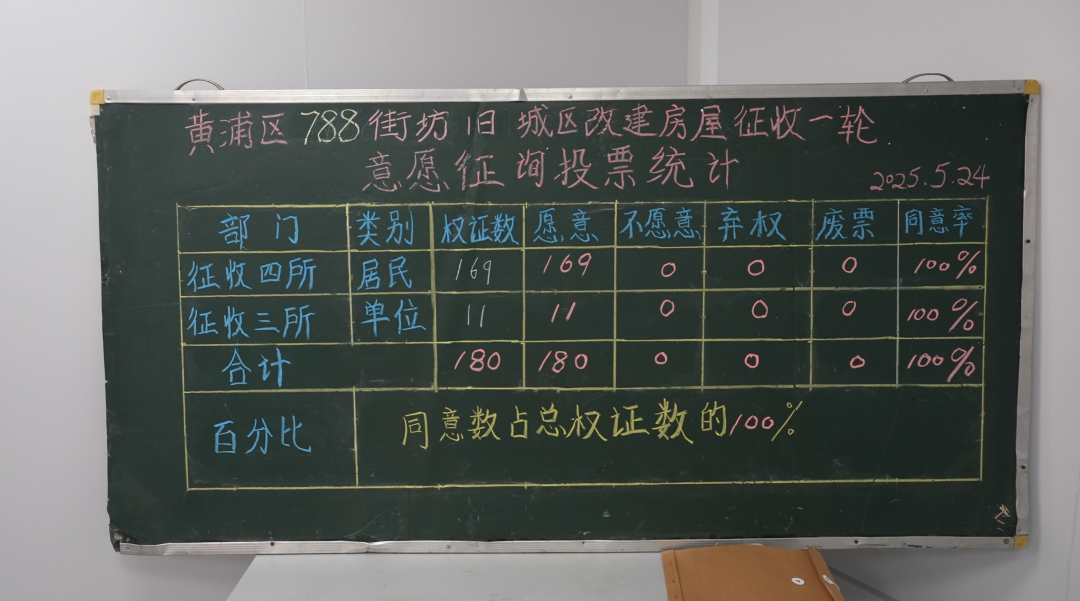 黄浦区788街坊旧城区改建房屋征收一轮
意愿征询投票统计
2025.5.24
部门 类别 权证数 愿意 不愿意 弃权 废票 同意率
征收四所 居民 169 169 0 0 0 100%
征收三所 单位 11 11 0 0 0 100%
合计 180 180 0 0 0 100%
百分比 同意数占总权证数的100%